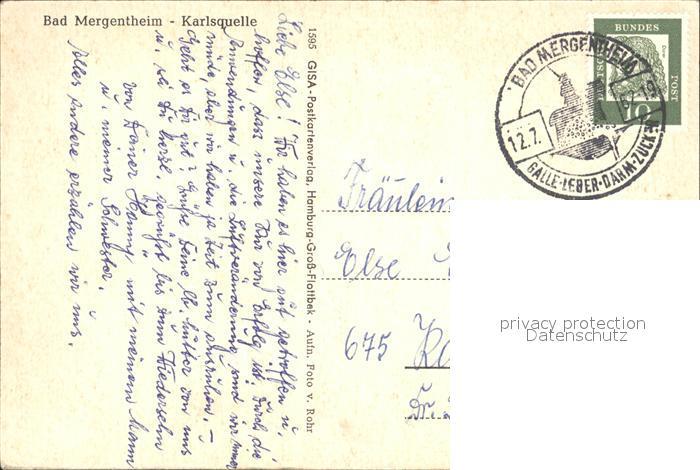 Bad Mergentheim - Karlsquelle
Liebe Else! Wir haben es hier gut getroffen u.
hoffen, dass unsere Kur von Erfolg ist. Durch die
Anwendungen u. die Luftveränderung sind wir immer
müde, aber wir haben ja Zeit zum ausruhen. –
Geht es Dir gut? Grüße Deine lb. Mutter von uns
u. sei Du herzl. gegrüßt bis zum Wiedersehn
von Deiner Henny mit meinem Mann
u. meiner Schwester.
Alles andere erzählen wir uns.
1595 GISA-Postkartenverlag, Hamburg-Groß-Flottbek - Aufn. Foto v. Rohr
BAD MERGENTHEIM
12.7.
GALLE-LEBER-DARM-ZUCKER
BUNDES
POST
10
Fräulein
Else
675
Dr.
privacy protection
Datenschutz